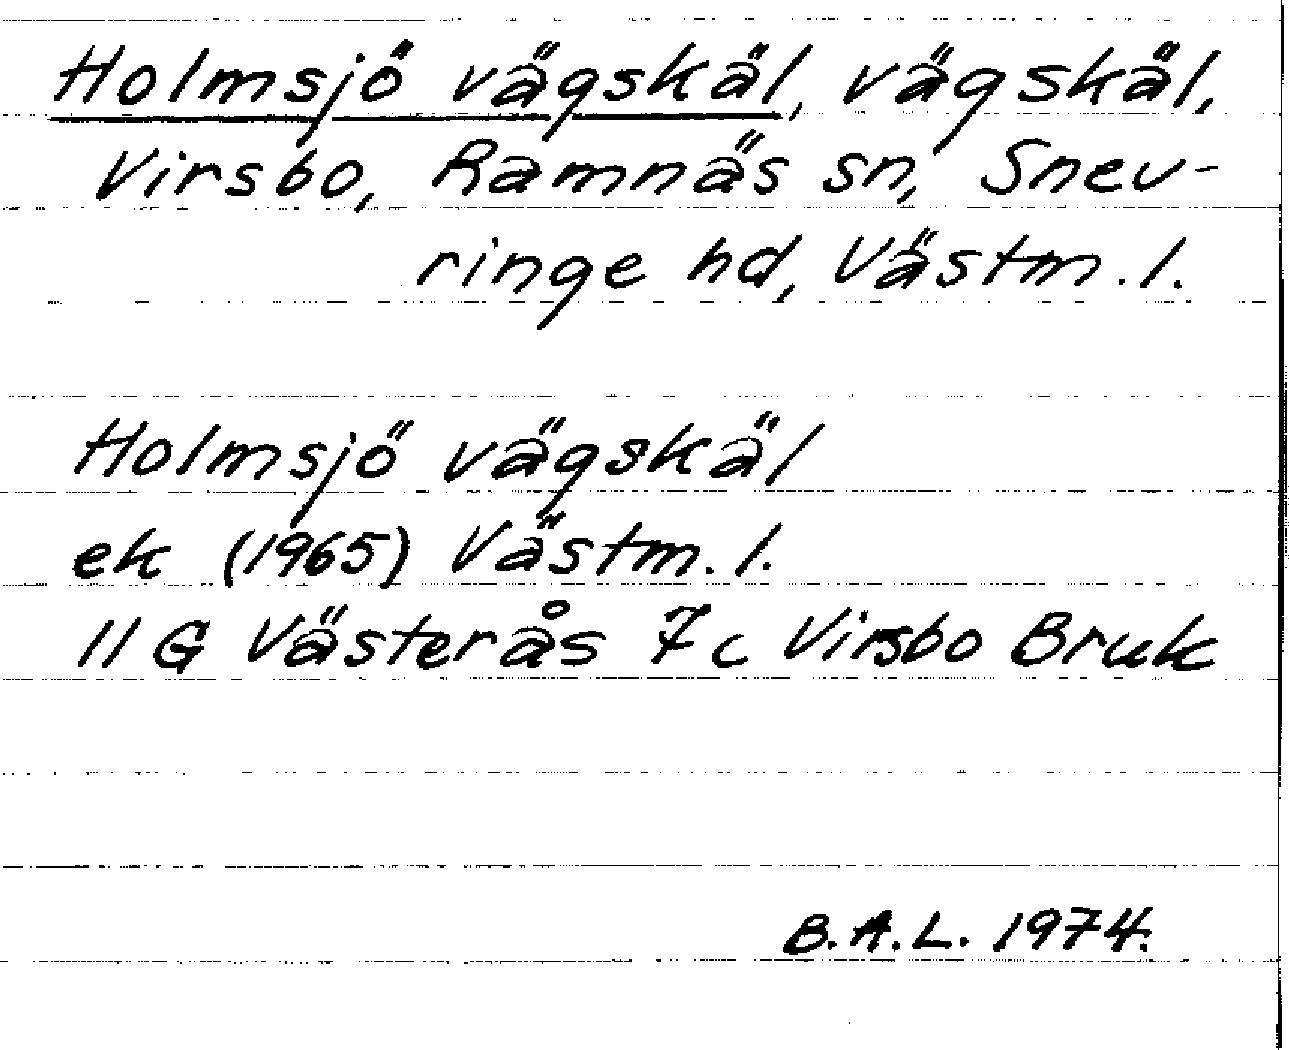 Holmsjö vägskäl, vägskäl,
Virsbo, Ramnäs sn, Snev-
ringe hd, Västm. l.
Holmsjö vägskäl
ek (1965) Västm. l.
11 G Västerås 7c Virsbo Bruk
B.A.L. 1974.